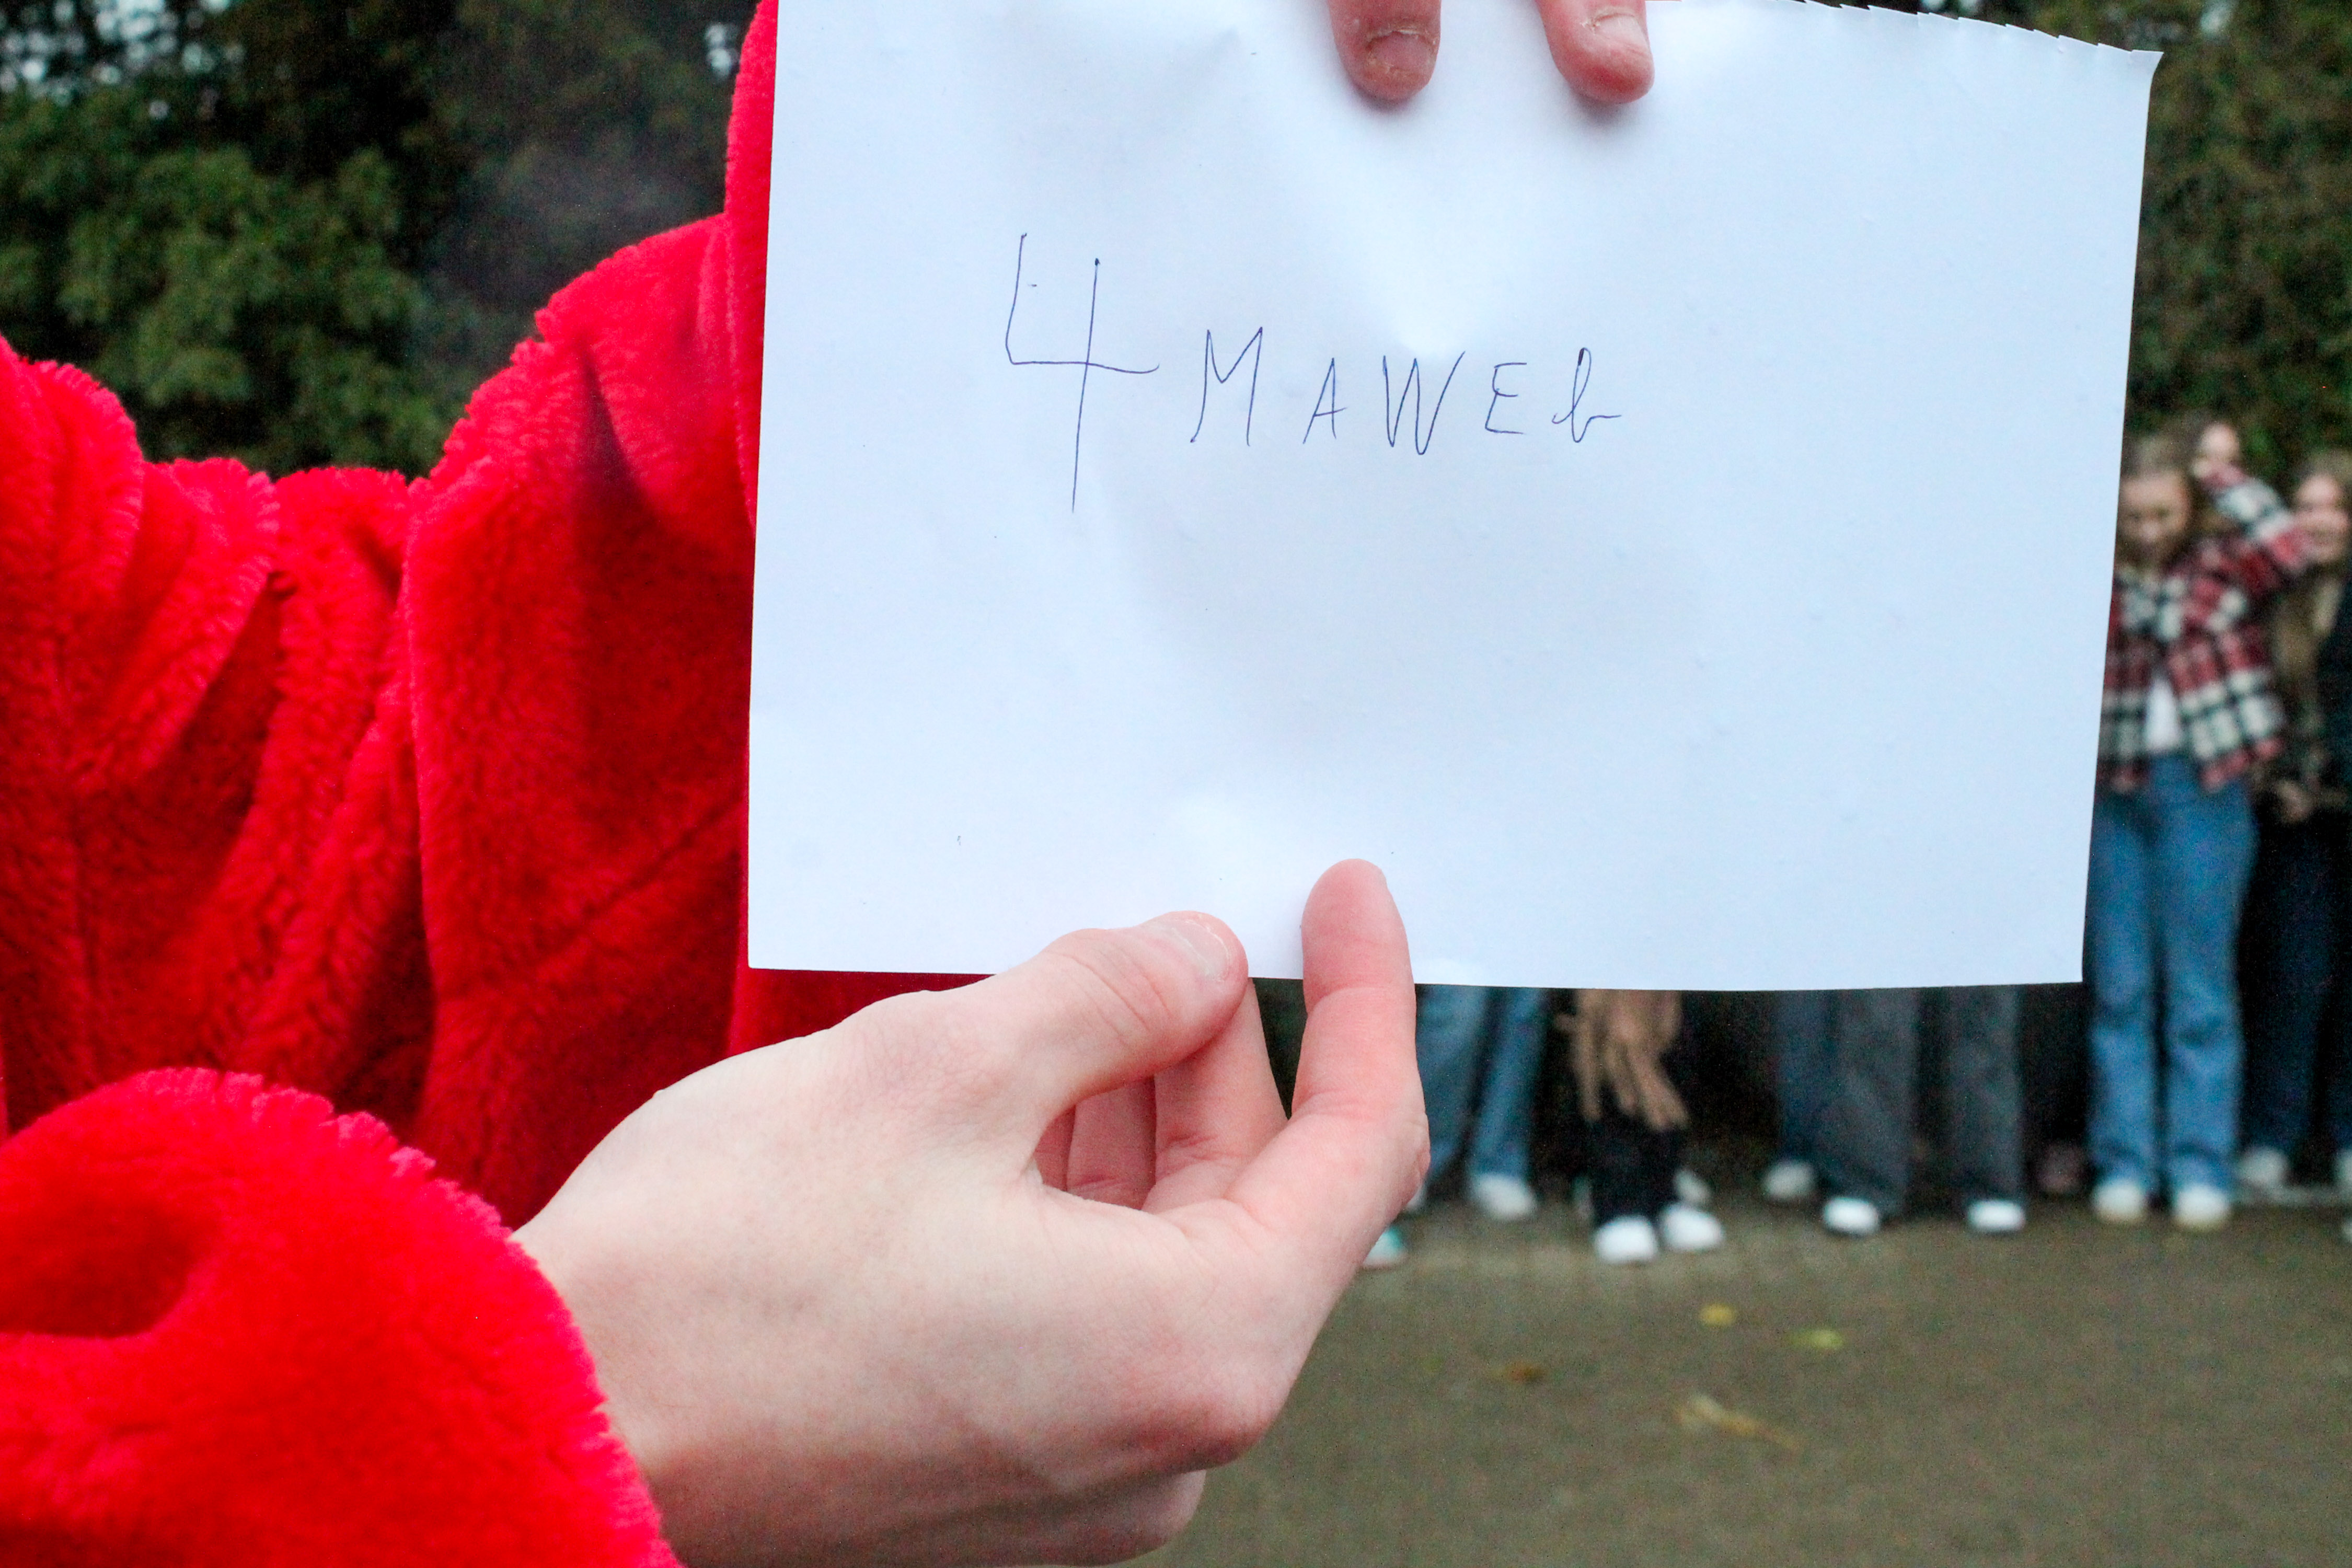 4 MAWEb